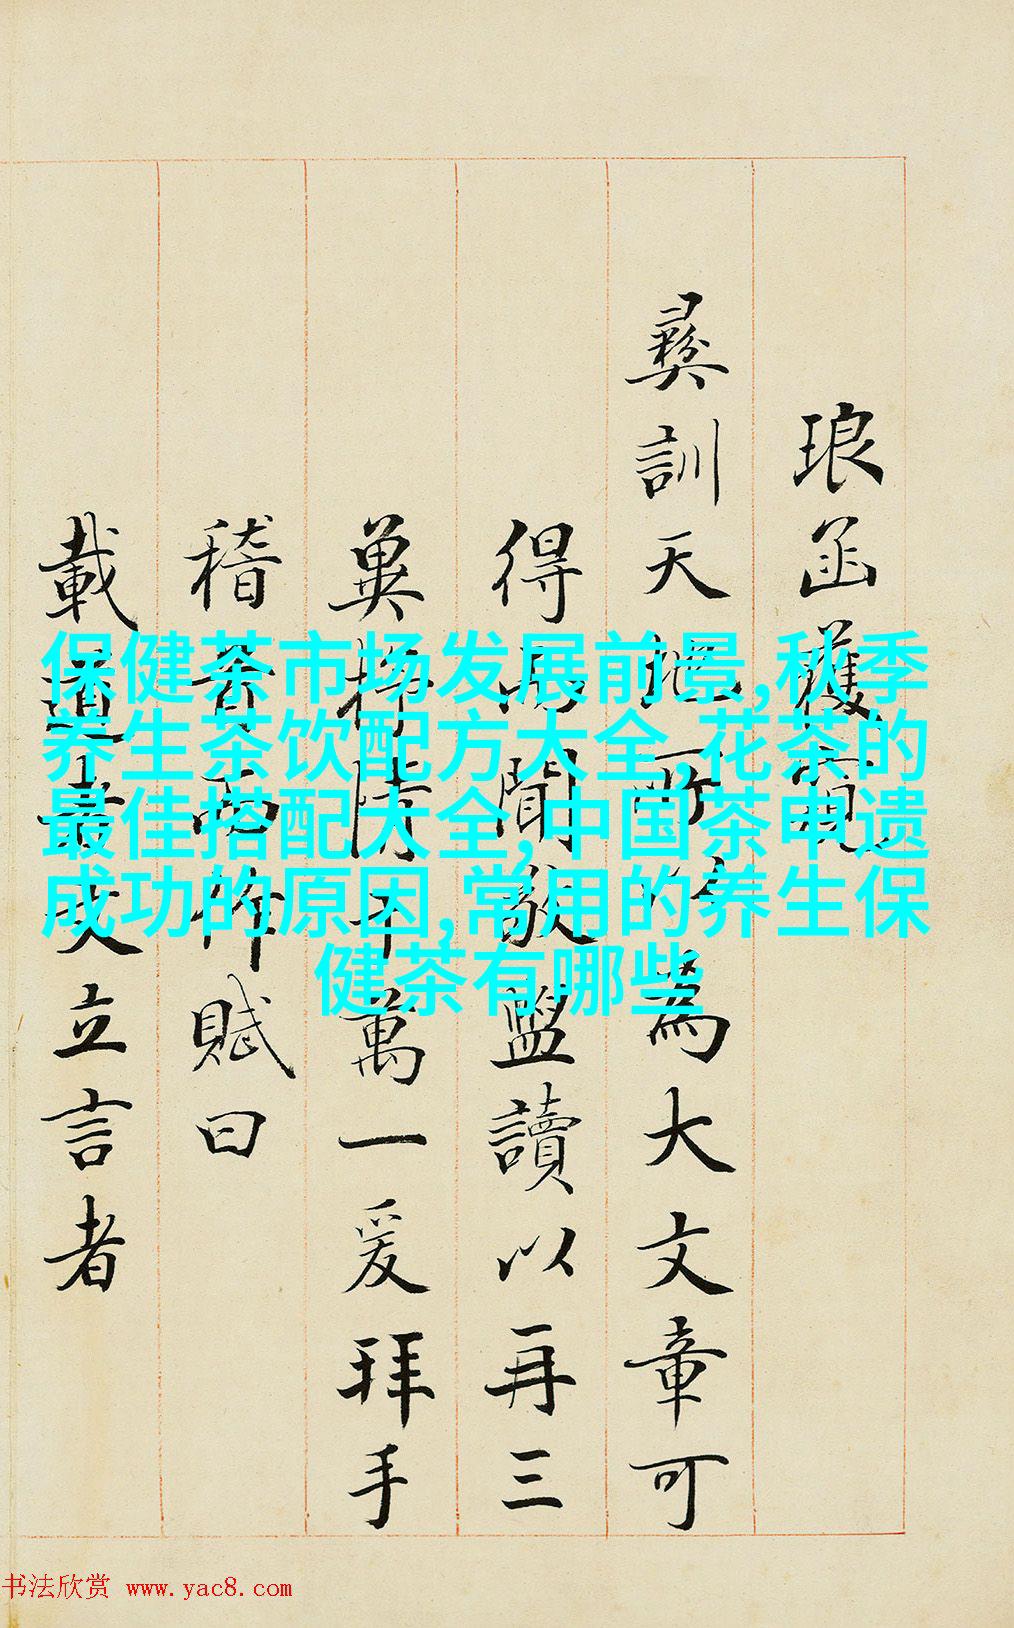 琅函獲窺
彝訓天地所以為大文章可
得而聞敬盥讀以再三
冀抒情于萬一爰拜手
稽首而作賦曰
載道者文立言者
保健茶市场发展前景,秋季
养生茶饮配方大全,花茶的
最佳搭配大全,中国茶申遗
成功的原因,常用的养生保
健茶有哪些
书法欣赏 www.yac8.com